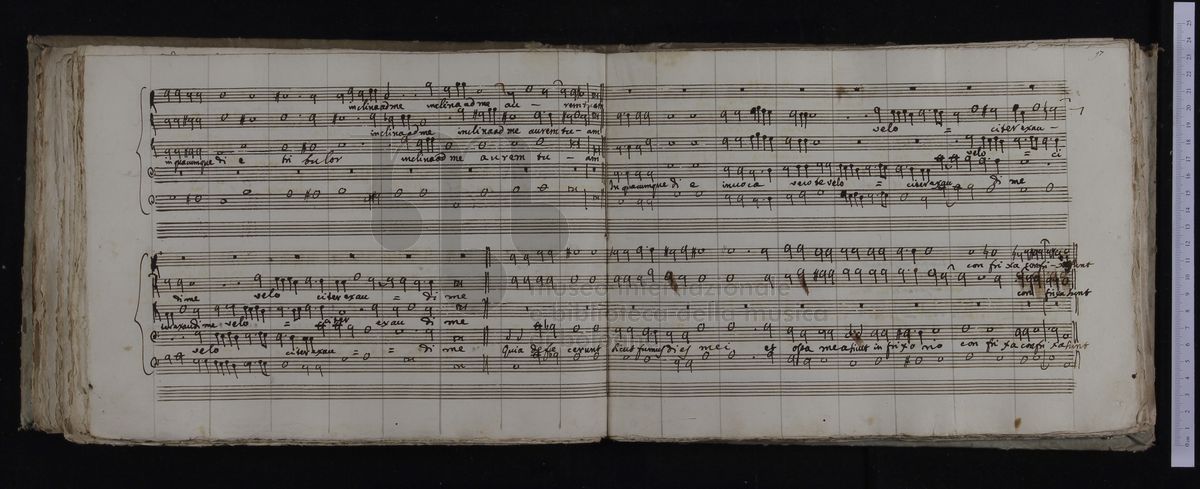 97
inclina ad me inclina ad me au - rem tuam
inclina ad me inclina ad me aurem tu - am
velo = citer exau -
in quacumque di e tri bulor inclina ad me aurem tu - am
velo = ci
In quacumque di e invoca vero te velo = citer exau di me
con fri xa confri - xa sunt
dime velo citer exau = di me
con fri xa sunt
citer exaudi me velo = citer exau di me
velo citer exau = = di me
quia de fe cerunt sicut fumus di es mei et ossa mea sicut in fri xo rio con fri xa con fri xa sunt
museo internazionale
e biblioteca della musica